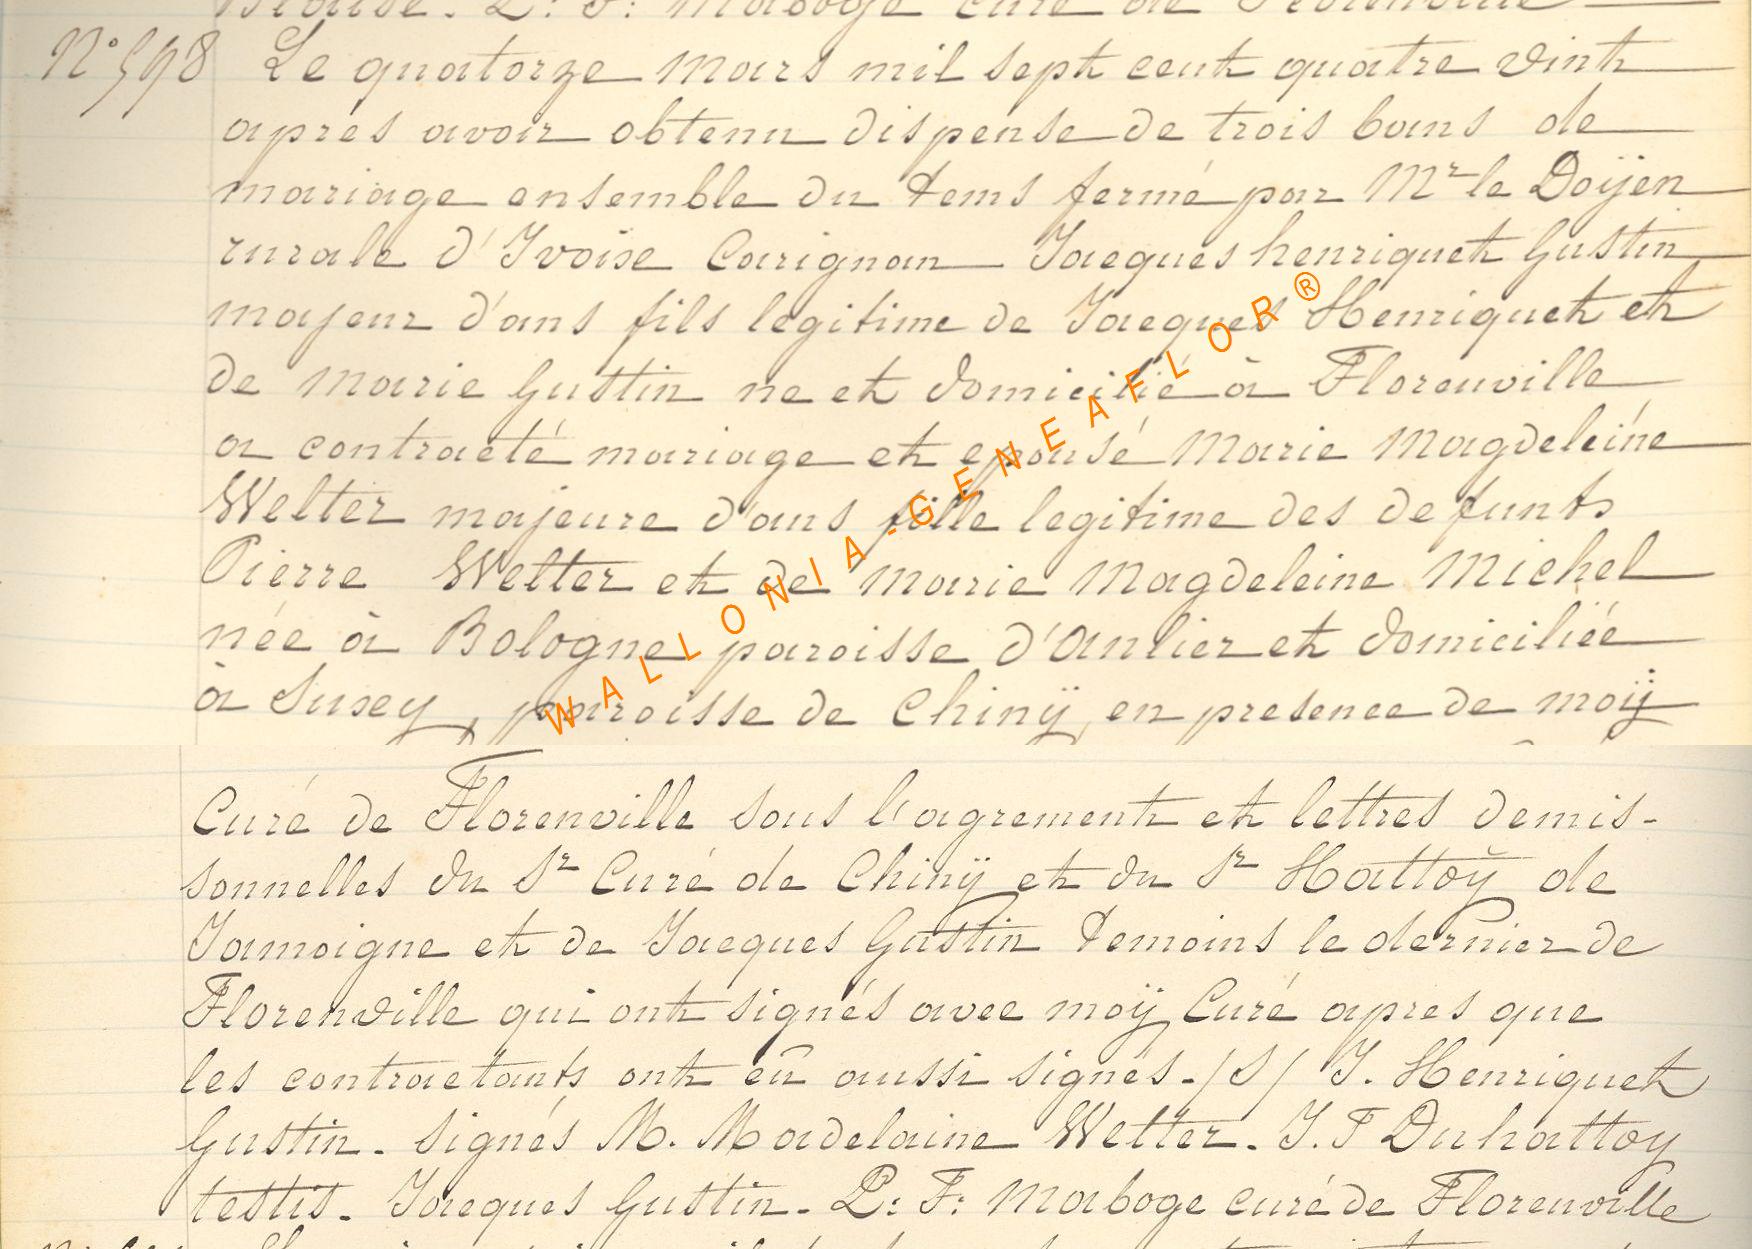 L: F: Maboge Curé de Florenville
N° 598 Le quatorze mars mil sept cent quatre vint
apres avoir obtenu dispense de trois bans de
mariage ensemble du tems fermé par Mr le Doÿen
rurale d'Ivoise Carignan Jacques henriquet Gustin
majeur d'ans fils legitime de Jacques Henriquet et
de Marie Gustin ne et domicilié à Florenville
a contracté mariage et epousé Marie Magdeleine
Welter majeure d'ans fille legitime des defunts
Pierre Welter et de Marie Magdeleine Michel
née à Bologne paroisse d'Anlier et domiciliée
à Suxey, paroisse de Chinÿ, en presence de moÿ
WALLONIA-GENEAFLOR®
Curé de Florenville sous l'agrement et lettres demis-
sonnelles du Sr Curé de Chinÿ et du Sr Hattoÿ de
Jamoigne et de Jacques Gustin temoins le dernier de
Florenville qui ont signés avec moÿ Curé apres que
les contractants ont eû aussi signés. /S/ J. Henriquet
Gustin. Signés M. Madelaine Welter. J. F Duhattoy
testis. Jacques Gustin. L: F: Maboge curé de Florenville